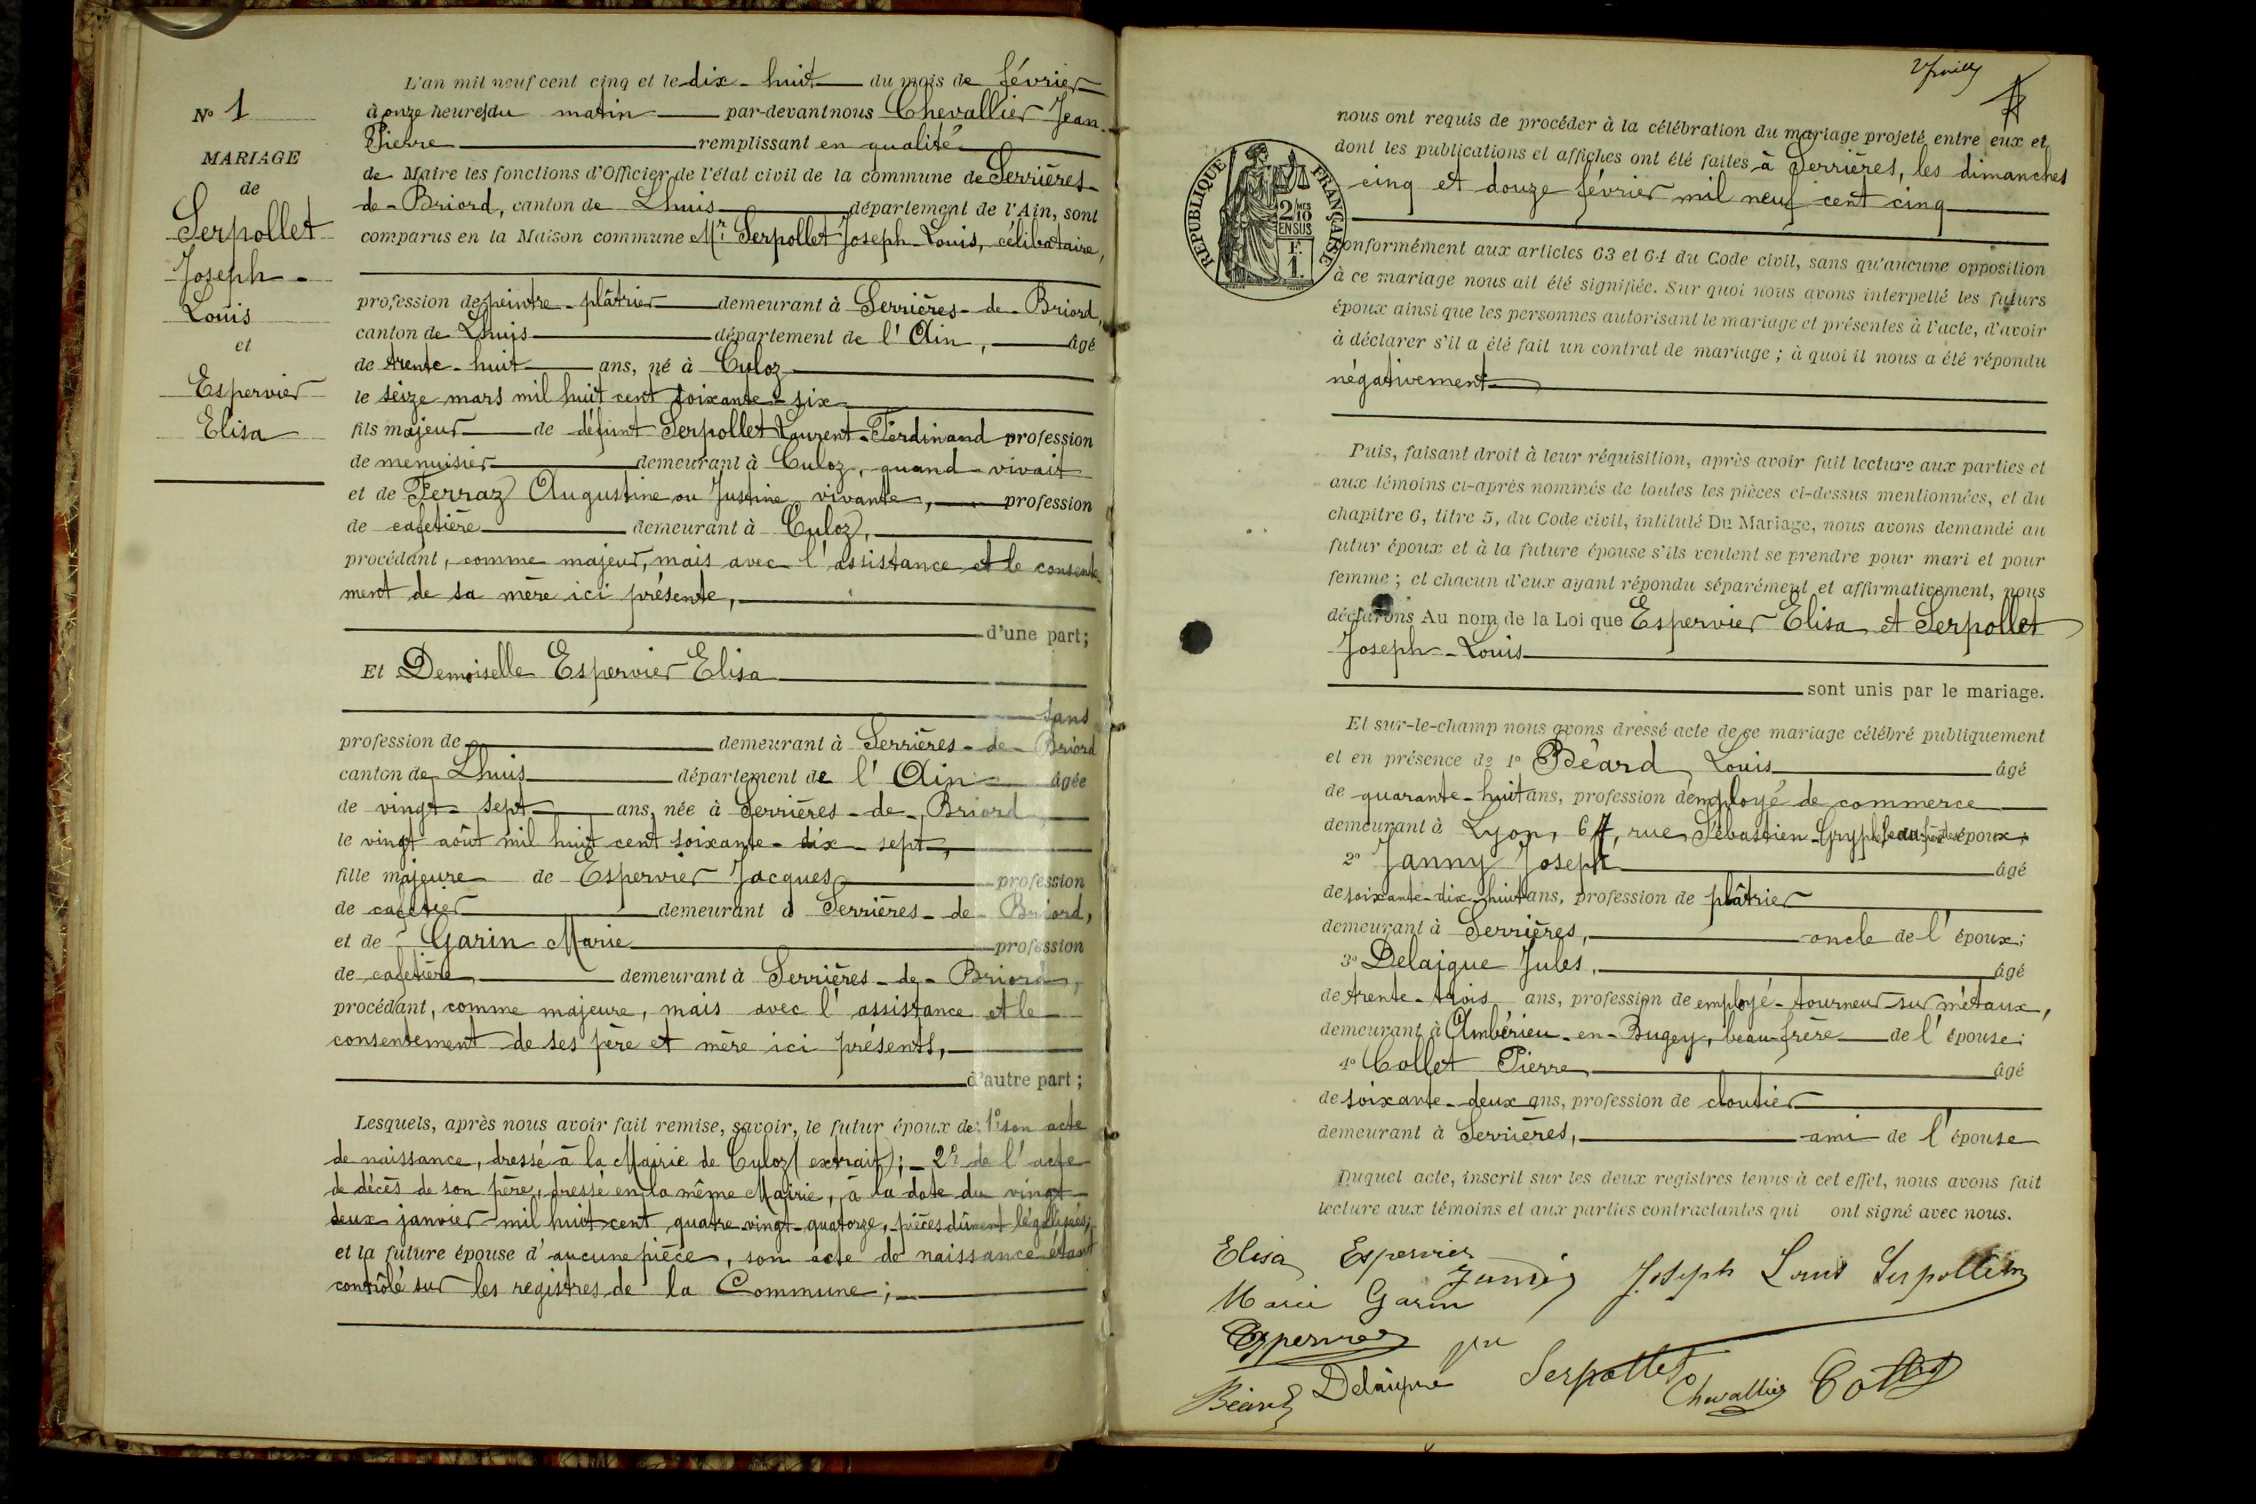 N° 1
MARIAGE
de
Serpollet
Joseph-
Louis
et
Espervier
Elisa
L'an mil neuf cent cinq et le dix-huit du mois de février
à onze heures du matin par-devant nous Chevallier Jean-
Pierre remplissant en qualité
de Maire les fonctions d'Officier de l'état civil de la commune de Serrières-
de-Briord, canton de Lhuis département de l'Ain, sont
comparus en la Maison commune Mr Serpollet Joseph-Louis, célibataire,
profession de peintre-plâtrier demeurant à Serrières-de-Briord,
canton de Lhuis département de l'Ain, âgé
de trente-huit ans, né à Culoz
le seize mars mil huit cent soixante-six
fils majeur de défunt Serpollet Laurent-Ferdinand profession
de menuisier demeurant à Culoz, quand vivait
et de Ferraz Augustine ou Justine, vivante, profession
de cafetière demeurant à Culoz,
procédant, comme majeur, mais avec l'assistance et le consente-
ment de sa mère ici présente,
d'une part;
Et Demoiselle Espervier Elisa
sans
profession de demeurant à Serrières-de-Briord
canton de Lhuis département de l'Ain âgée
de vingt-sept ans, née à Serrières-de-Briord,
le vingt août mil huit cent soixante-dix-sept,
fille majeure de Espervier Jacques profession
de cafetier demeurant à Serrières-de-Briord,
et de Garin Marie profession
de cafetière demeurant à Serrières-de-Briord,
procédant, comme majeure, mais avec l'assistance et le
consentement de ses père et mère ici présents,
d'autre part;
Lesquels, après nous avoir fait remise, savoir, le futur époux de: 1° son acte
de naissance, dressé à la Mairie de Culoz (extrait); - 2° de l'acte
de décès de son père, dressé en la même Mairie, à la date du vingt-
deux janvier mil huit cent quatre-vingt-quatorze, pièces dûment légalisées;
et la future épouse d'aucune pièce, son acte de naissance étant
contrôlé sur les registres de la Commune;
RÉPUBLIQUE FRANÇAISE
2/10 EN SUS
1 F.
nous ont requis de procéder à la célébration du mariage projeté entre eux et
dont les publications et affiches ont été faites à Serrières, les dimanches
cinq et douze février mil neuf cent cinq
conformément aux articles 63 et 64 du Code civil, sans qu'aucune opposition
à ce mariage nous ait été signifiée. Sur quoi nous avons interpellé les futurs
époux ainsi que les personnes autorisant le mariage et présentes à l'acte, d'avoir
à déclarer s'il a été fait un contrat de mariage; à quoi il nous a été répondu
négativement
Puis, faisant droit à leur réquisition, après avoir fait lecture aux parties et
aux témoins ci-après nommés de toutes les pièces ci-dessus mentionnées, et du
chapitre 6, titre 5, du Code civil, intitulé Du Mariage, nous avons demandé au
futur époux et à la future épouse s'ils veulent se prendre pour mari et pour
femme; et chacun d'eux ayant répondu séparément et affirmativement, nous
déclarons Au nom de la Loi que Espervier Elisa et Serpollet
Joseph-Louis
sont unis par le mariage.
Et sur-le-champ nous avons dressé acte de ce mariage célébré publiquement
et en présence de 1° Béard Louis âgé
de quarante-huit ans, profession d'employé de commerce
demeurant à Lyon, 67, rue Sébastien-Gryphe, beau-frère de l'époux;
2° Janny Joseph âgé
de soixante-dix-huit ans, profession de plâtrier
demeurant à Serrières, oncle de l'époux;
3° Delaigue Jules, âgé
de trente-trois ans, profession de employé-tourneur sur métaux,
demeurant à Ambérieu-en-Bugey, beau-frère de l'épouse;
4° Collet Pierre âgé
de soixante-deux ans, profession de cloutier
demeurant à Serrières, ami de l'épouse
Duquel acte, inscrit sur les deux registres tenus à cet effet, nous avons fait
lecture aux témoins et aux parties contractantes qui ont signé avec nous.
Elisa Espervier
Joseph Louis Serpollet
Marie Garin
Espervier
Béard Delaigue Serpollet Chevallier Collet